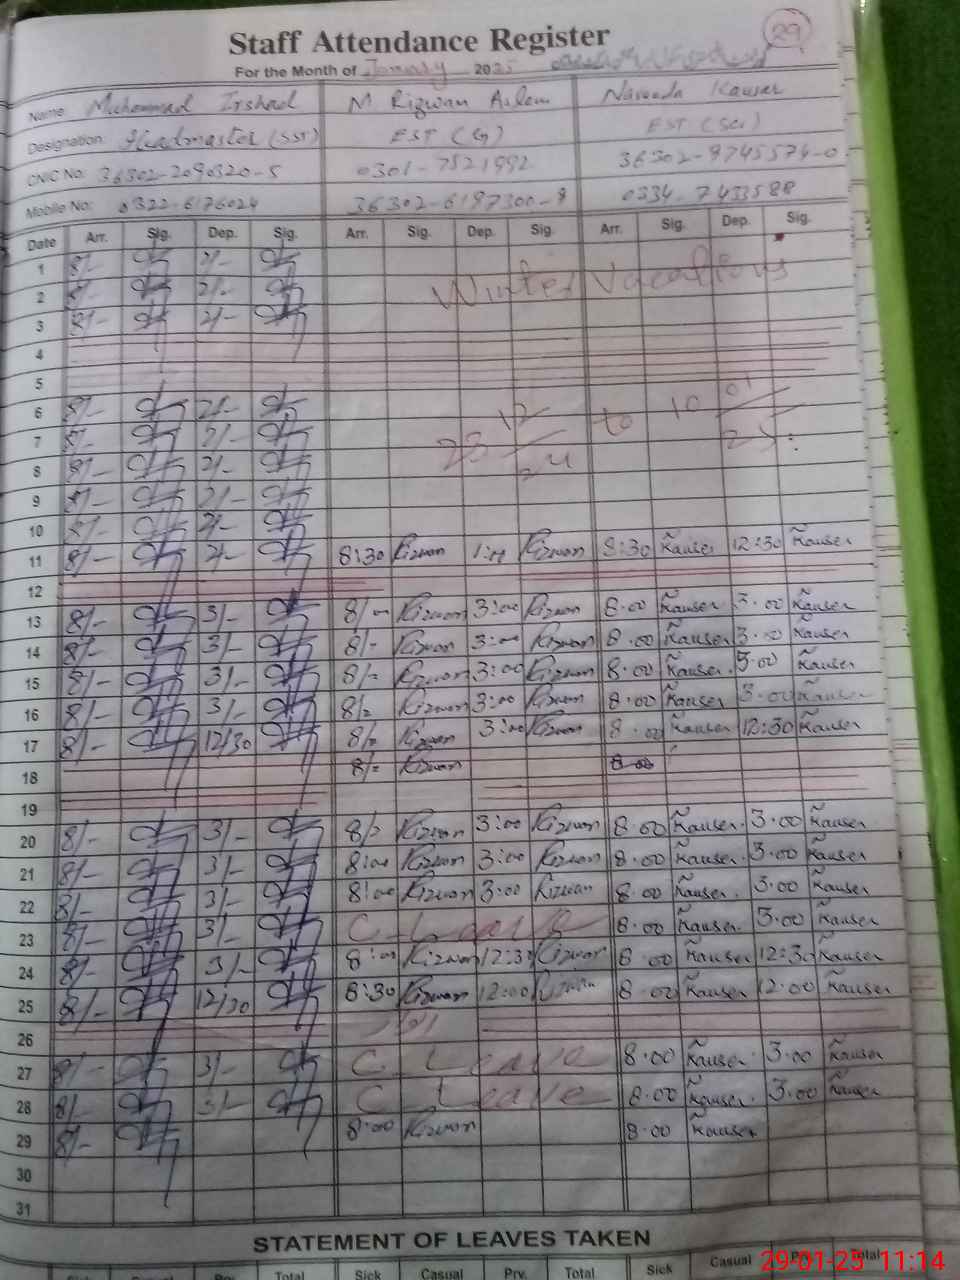 29
Staff Attendance Register
For the Month of January 2025
Name: Muhammad Irshad M. Rizwan Aslam Naveeda Kauser
Designation: Headmaster (SST) EST (G) EST (Sci)
CNIC No: 36302-2090320-5 0301-7521992 36302-9745574-0
Mobile No: 0322-6176024 36302-6197300-9 0334-7433588
Date Arr. Sig. Dep. Sig. Arr. Sig. Dep. Sig. Arr. Sig. Dep. Sig.
1 8/- 2/-
2 8/- 2/- Winter Vacations
3 8/- 2/-
4
5
6 8/- 2/-
7 8/- 2/- 23 12/24 to 10 01/25
8 8/- 2/-
9 8/- 2/-
10 8/- 2/-
11 8/- 2/- 8:30 Rizwan Rizwan 8:30 Kauser 12:30 Kauser
12
13 8/- 3/- 8/-00 Rizwan 3:00 Rizwan 8.00 Kauser 3.00 Kauser
14 8/- 3/- 8/- Rizwan 3:00 Rizwan 8.00 Kauser 3.00 Kauser
15 8/- 3/- 8/- Rizwan 3:00 Rizwan 8.00 Kauser 3.00 Kauser
16 8/- 3/- 8/- Rizwan 3:00 Rizwan 8.00 Kauser 3.00 Kauser
17 8/- 12/30 8/- Rizwan 3:00 Rizwan 8.00 Kauser 12:30 Kauser
18 8/- Rizwan 8.00
19
20 8/- 3/- 8/- Rizwan 3:00 Rizwan 8.00 Kauser 3.00 Kauser
21 8/- 3/- 8:00 Rizwan 3:00 Rizwan 8.00 Kauser 3.00 Kauser
22 8/- 3/- 8:00 Rizwan 3:00 Rizwan 8.00 Kauser 3.00 Kauser
23 8/- 3/- C. Leave 8.00 Kauser 3.00 Kauser
24 8/- 3/- 8:00 Rizwan 12:30 Rizwan 8.00 Kauser 12:30 Kauser
25 8/- 12/30 8:30 Rizwan 12:00 Rizwan 8.00 Kauser 12.00 Kauser
26
27 8/- 3/- C. Leave 8.00 Kauser 3.00 Kauser
28 8/- 3/- C Leave 8.00 Kauser 3.00 Kauser
29 8/- 8:00 Rizwan 8.00 Kauser
30
31
STATEMENT OF LEAVES TAKEN
Sick Casual Prv. Total Sick Casual Prv. Total Sick Casual Prv. Total
29-01-25 11:14